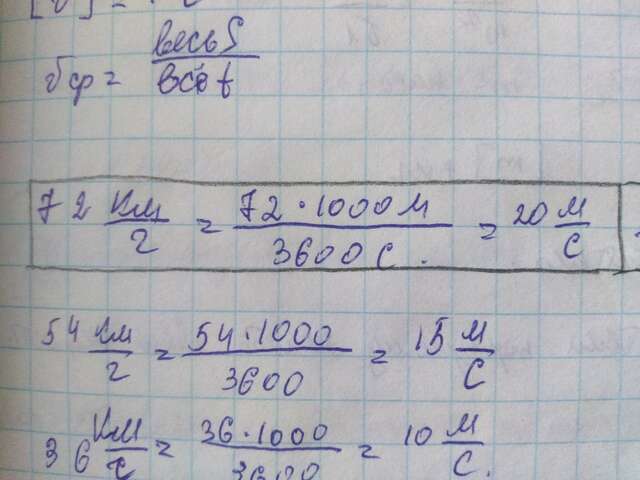 весь S
vср = ─────
всё t
72 км/ч = 72·1000м/3600с. = 20 м/с
54 км/ч = 54·1000/3600 = 15 м/с
36 км/ч = 36·1000/3600 = 10 м/с.